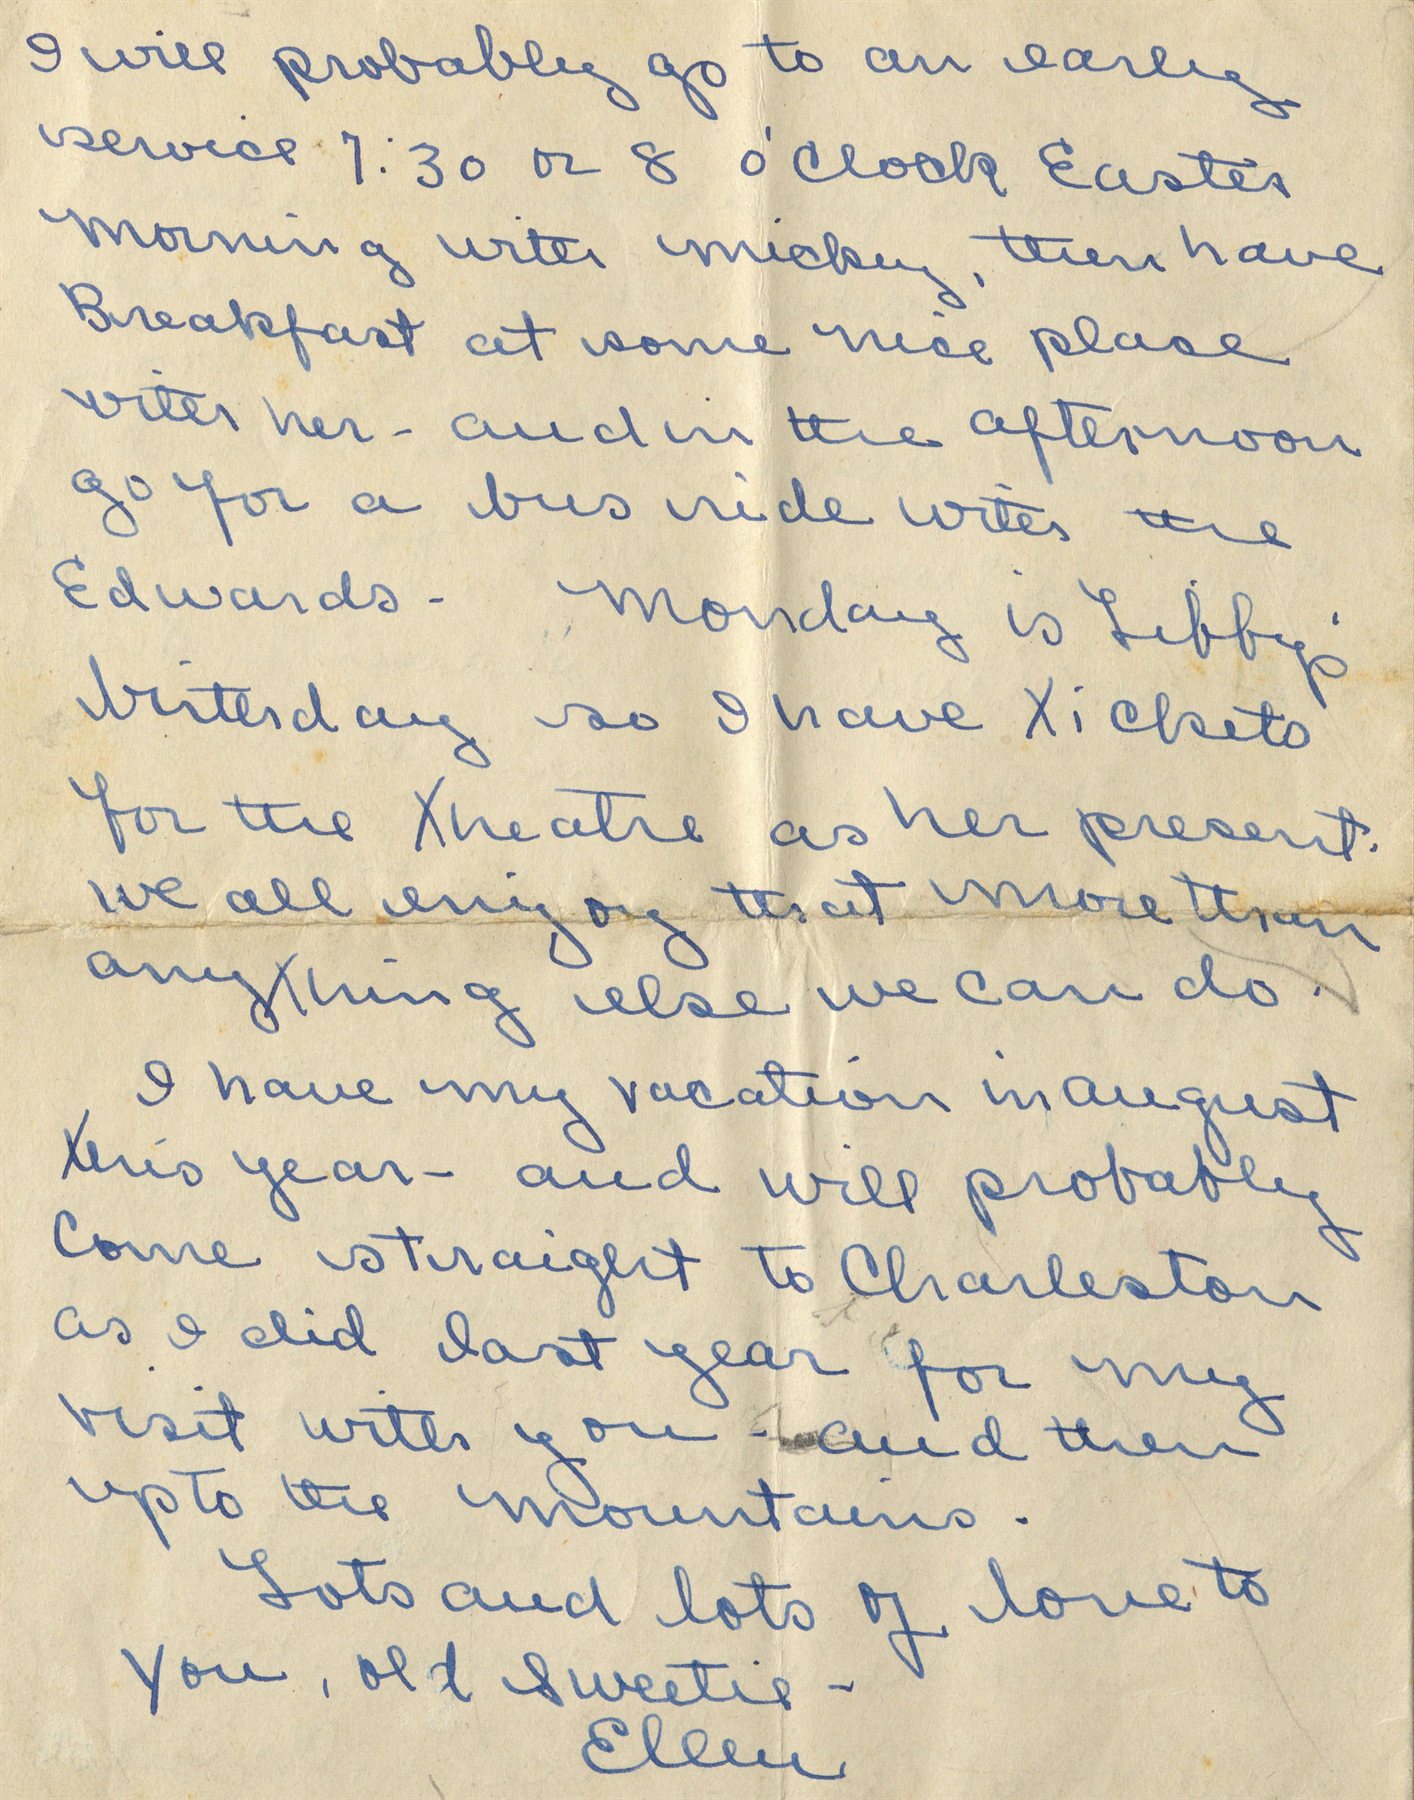 I will probably go to an early
service 7:30 or 8 o'clock Easter
morning with Mickey, then have
Breakfast at some nice place
with her - and in the afternoon
go for a bus ride with the
Edwards - Monday is Libby's
birthday so I have tickets
for the theatre as her present.
We all enjoy that more than
anything else we can do.
I have my vacation in August
this year - and will probably
come straight to Charleston
as I did last year for my
visit with you - and then
up to the mountains.
Lots and lots of love to
you, old sweetie -
Ellen